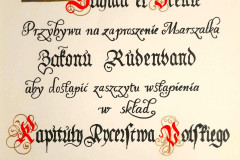 Przybywa na zaproszenie Marszałka
Zakonu Rüdenband
aby dostąpić zaszczytu wstąpienia
w skład
Kapituły Rycerstwa Polskiego